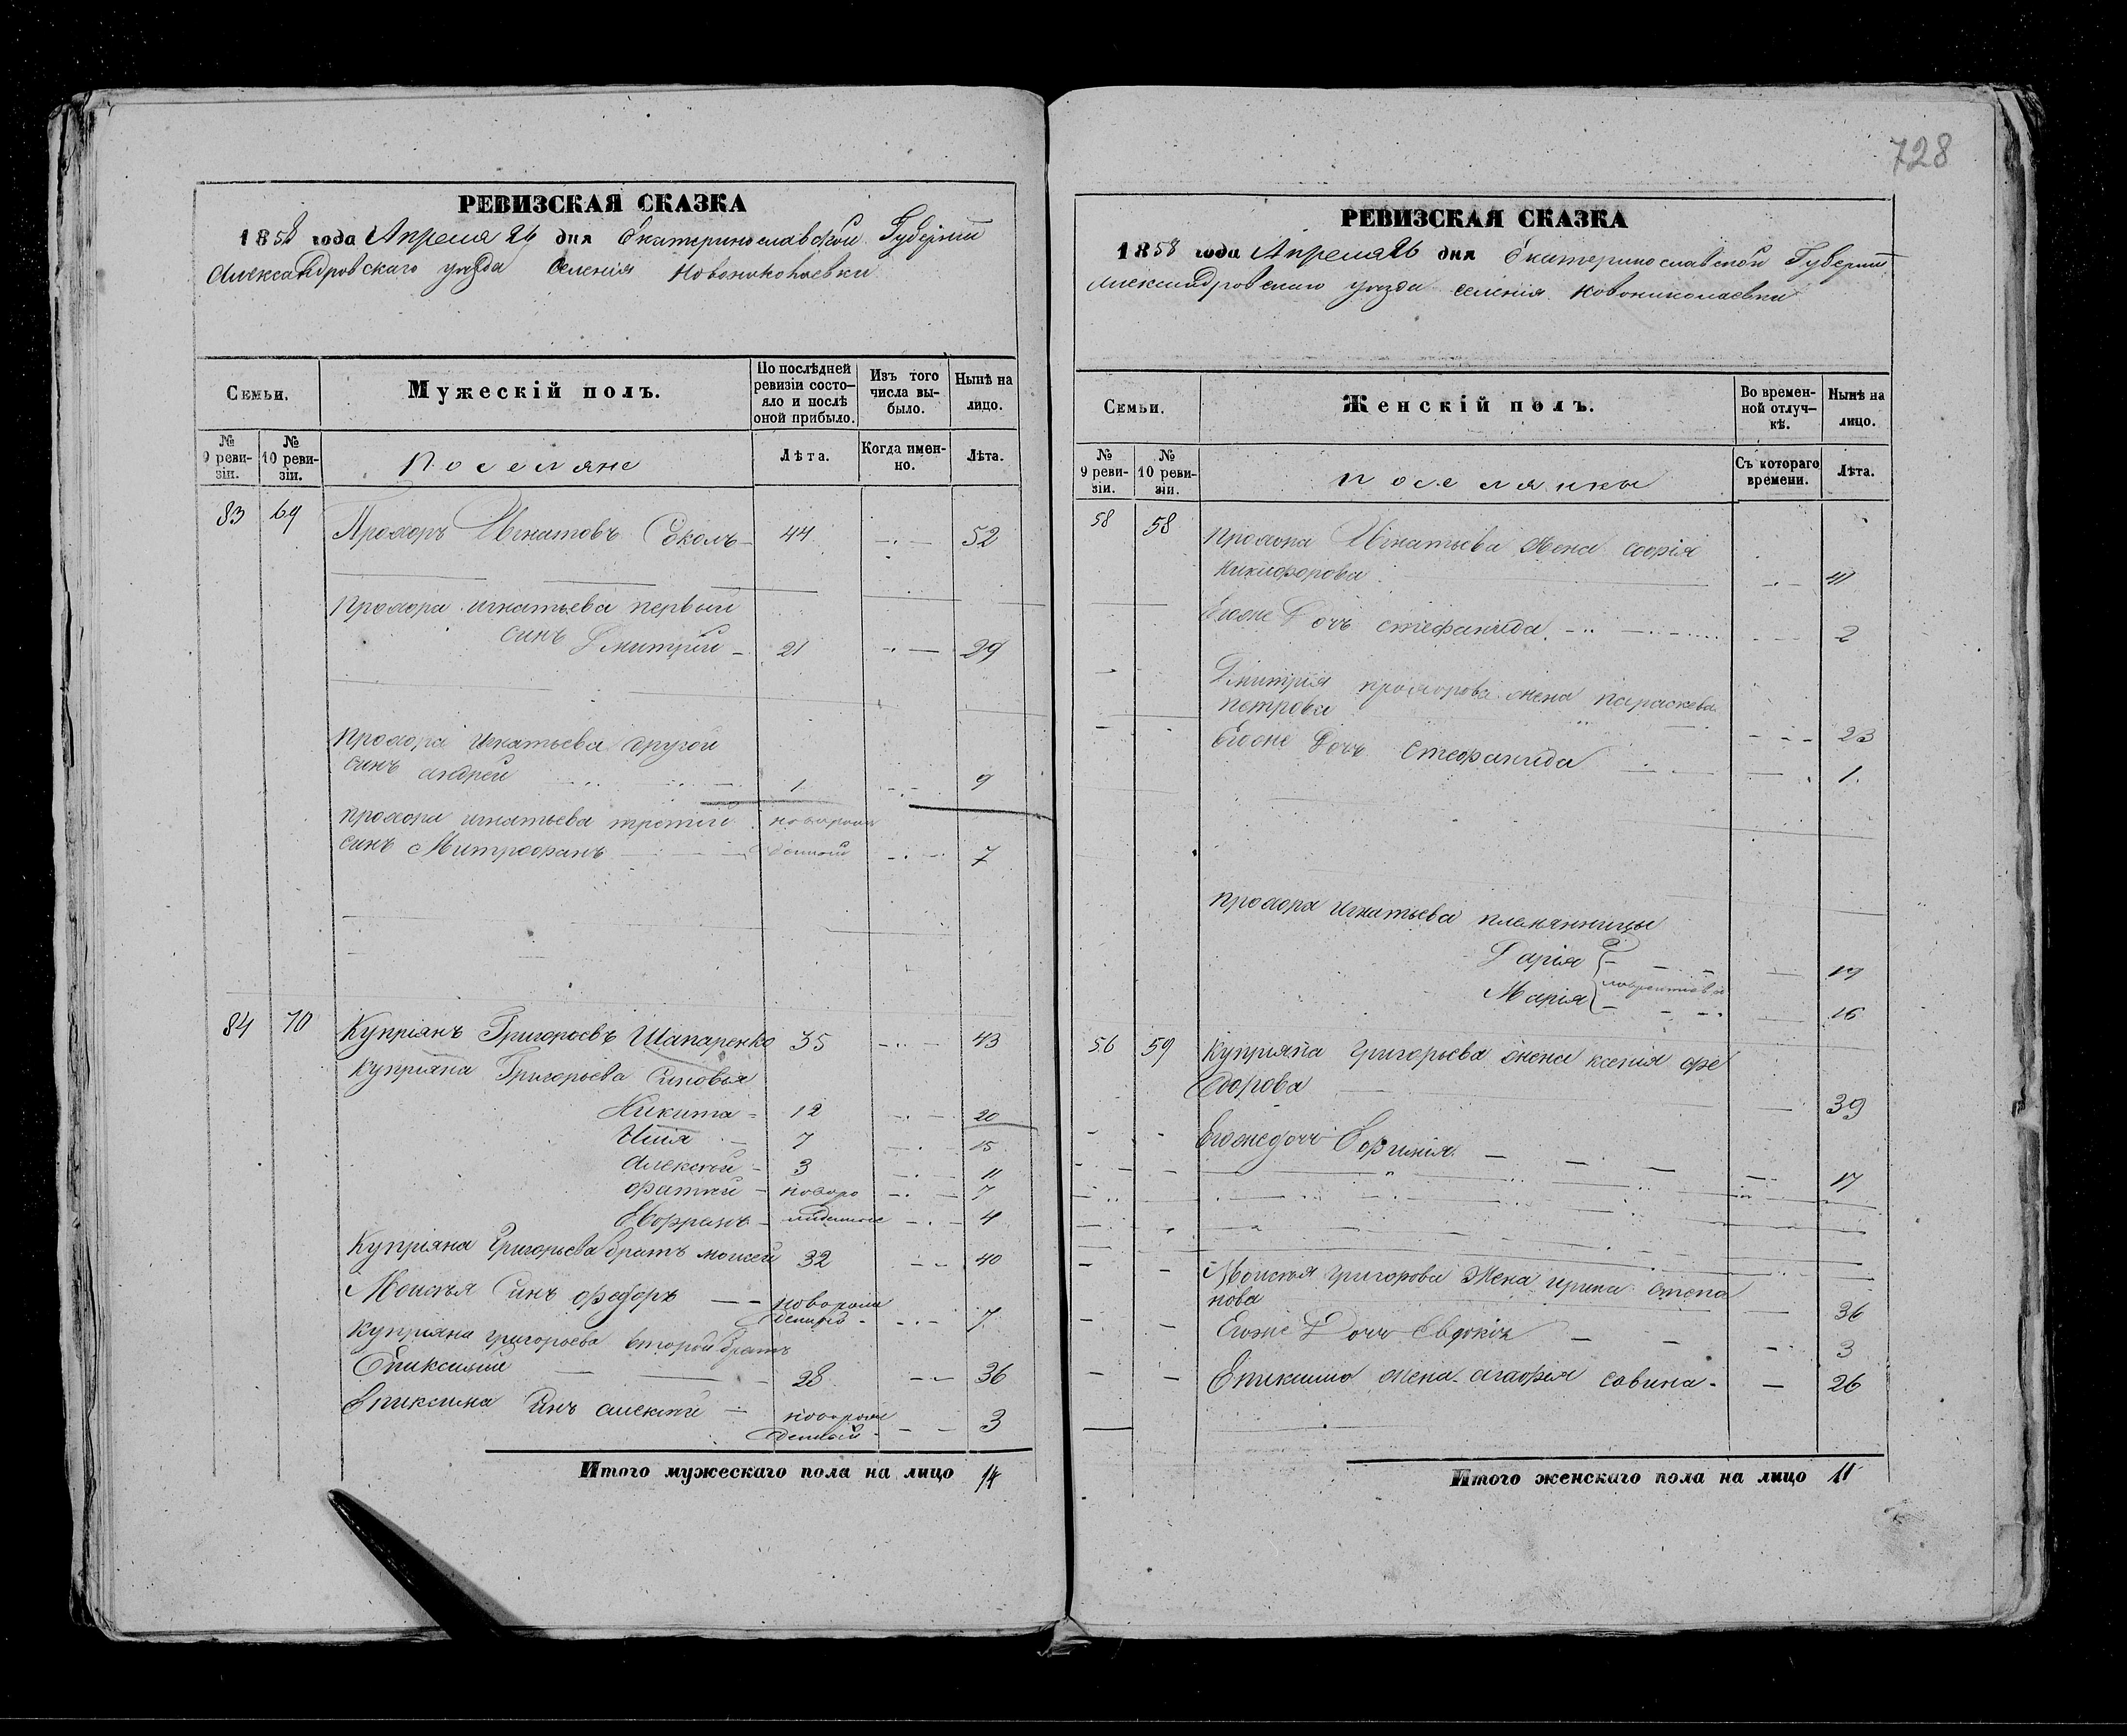 728
РЕВИЗСКАЯ СКАЗКА
1858 года Апреля 26 дня Екатеринославской Губерніи
Александровскаго уезда Селенія Новониколаевки
Семьи.
Мужескій полъ.
По послѣдней ревизіи состо-
яло и послѣ оной прибыло.
Изъ того числа вы-
было.
Нынѣ на лицо.
№ 9 реви-
зіи.
№ 10 реви-
зіи.
Поселяне
Лѣта.
Когда имен-
но.
Лѣта.
83 69 Прохоръ Игнатовъ Соколъ 44 52
Прохора игнатьева первый
синъ Дмитрій 21 29
Прохора игнатьева другой
синъ андрей 1 9
прохора игнатьева третій новорож
синъ Митрофанъ денный 7
84 70 Купріянъ Григорьевъ Шапаренко 35 43
Купріяна Григорьева Синовья
Никита 12 20
Илія 7 15
Алексей 3 11
фатей новоро 7
4
Купріяна Григорьева братъ моисей 32 40
Моисея Синъ федоръ новорож
денный 7
Купріяна григорьева второй братъ
28 36
Синъ алексей новорож
денный 3
Итого мужескаго пола на лицо 14
РЕВИЗСКАЯ СКАЗКА
1858 года Апреля 26 дня Екатеринославской Губерніи
Александровскаго уезда селенія Новониколаевки
Семьи.
Женскій полъ.
Во времен-
ной отлуч-
кѣ.
Нынѣ на лицо.
№ 9 реви-
зіи.
№ 10 реви-
зіи.
поселянки
Съ котораго времени.
Лѣта.
58 58 Прохора Игнатьева жена софія
Никифорова 41
Егоже Дочь стефанида 2
Дмитрія прохорова жена параскева
петрова 23
Егоже Дочь Стефанида 1
прохора игнатьева племянницы
Дарія 17
Марія 16
56 59 Купріяна Григорьева жена ксенія фе
дорова 39
Егоже дочь 17
Моисея григорова Жена ирина степа
нова 36
Егоже Дочь Евдокія 3
жена агафія савина 26
Итого женскаго пола на лицо 11